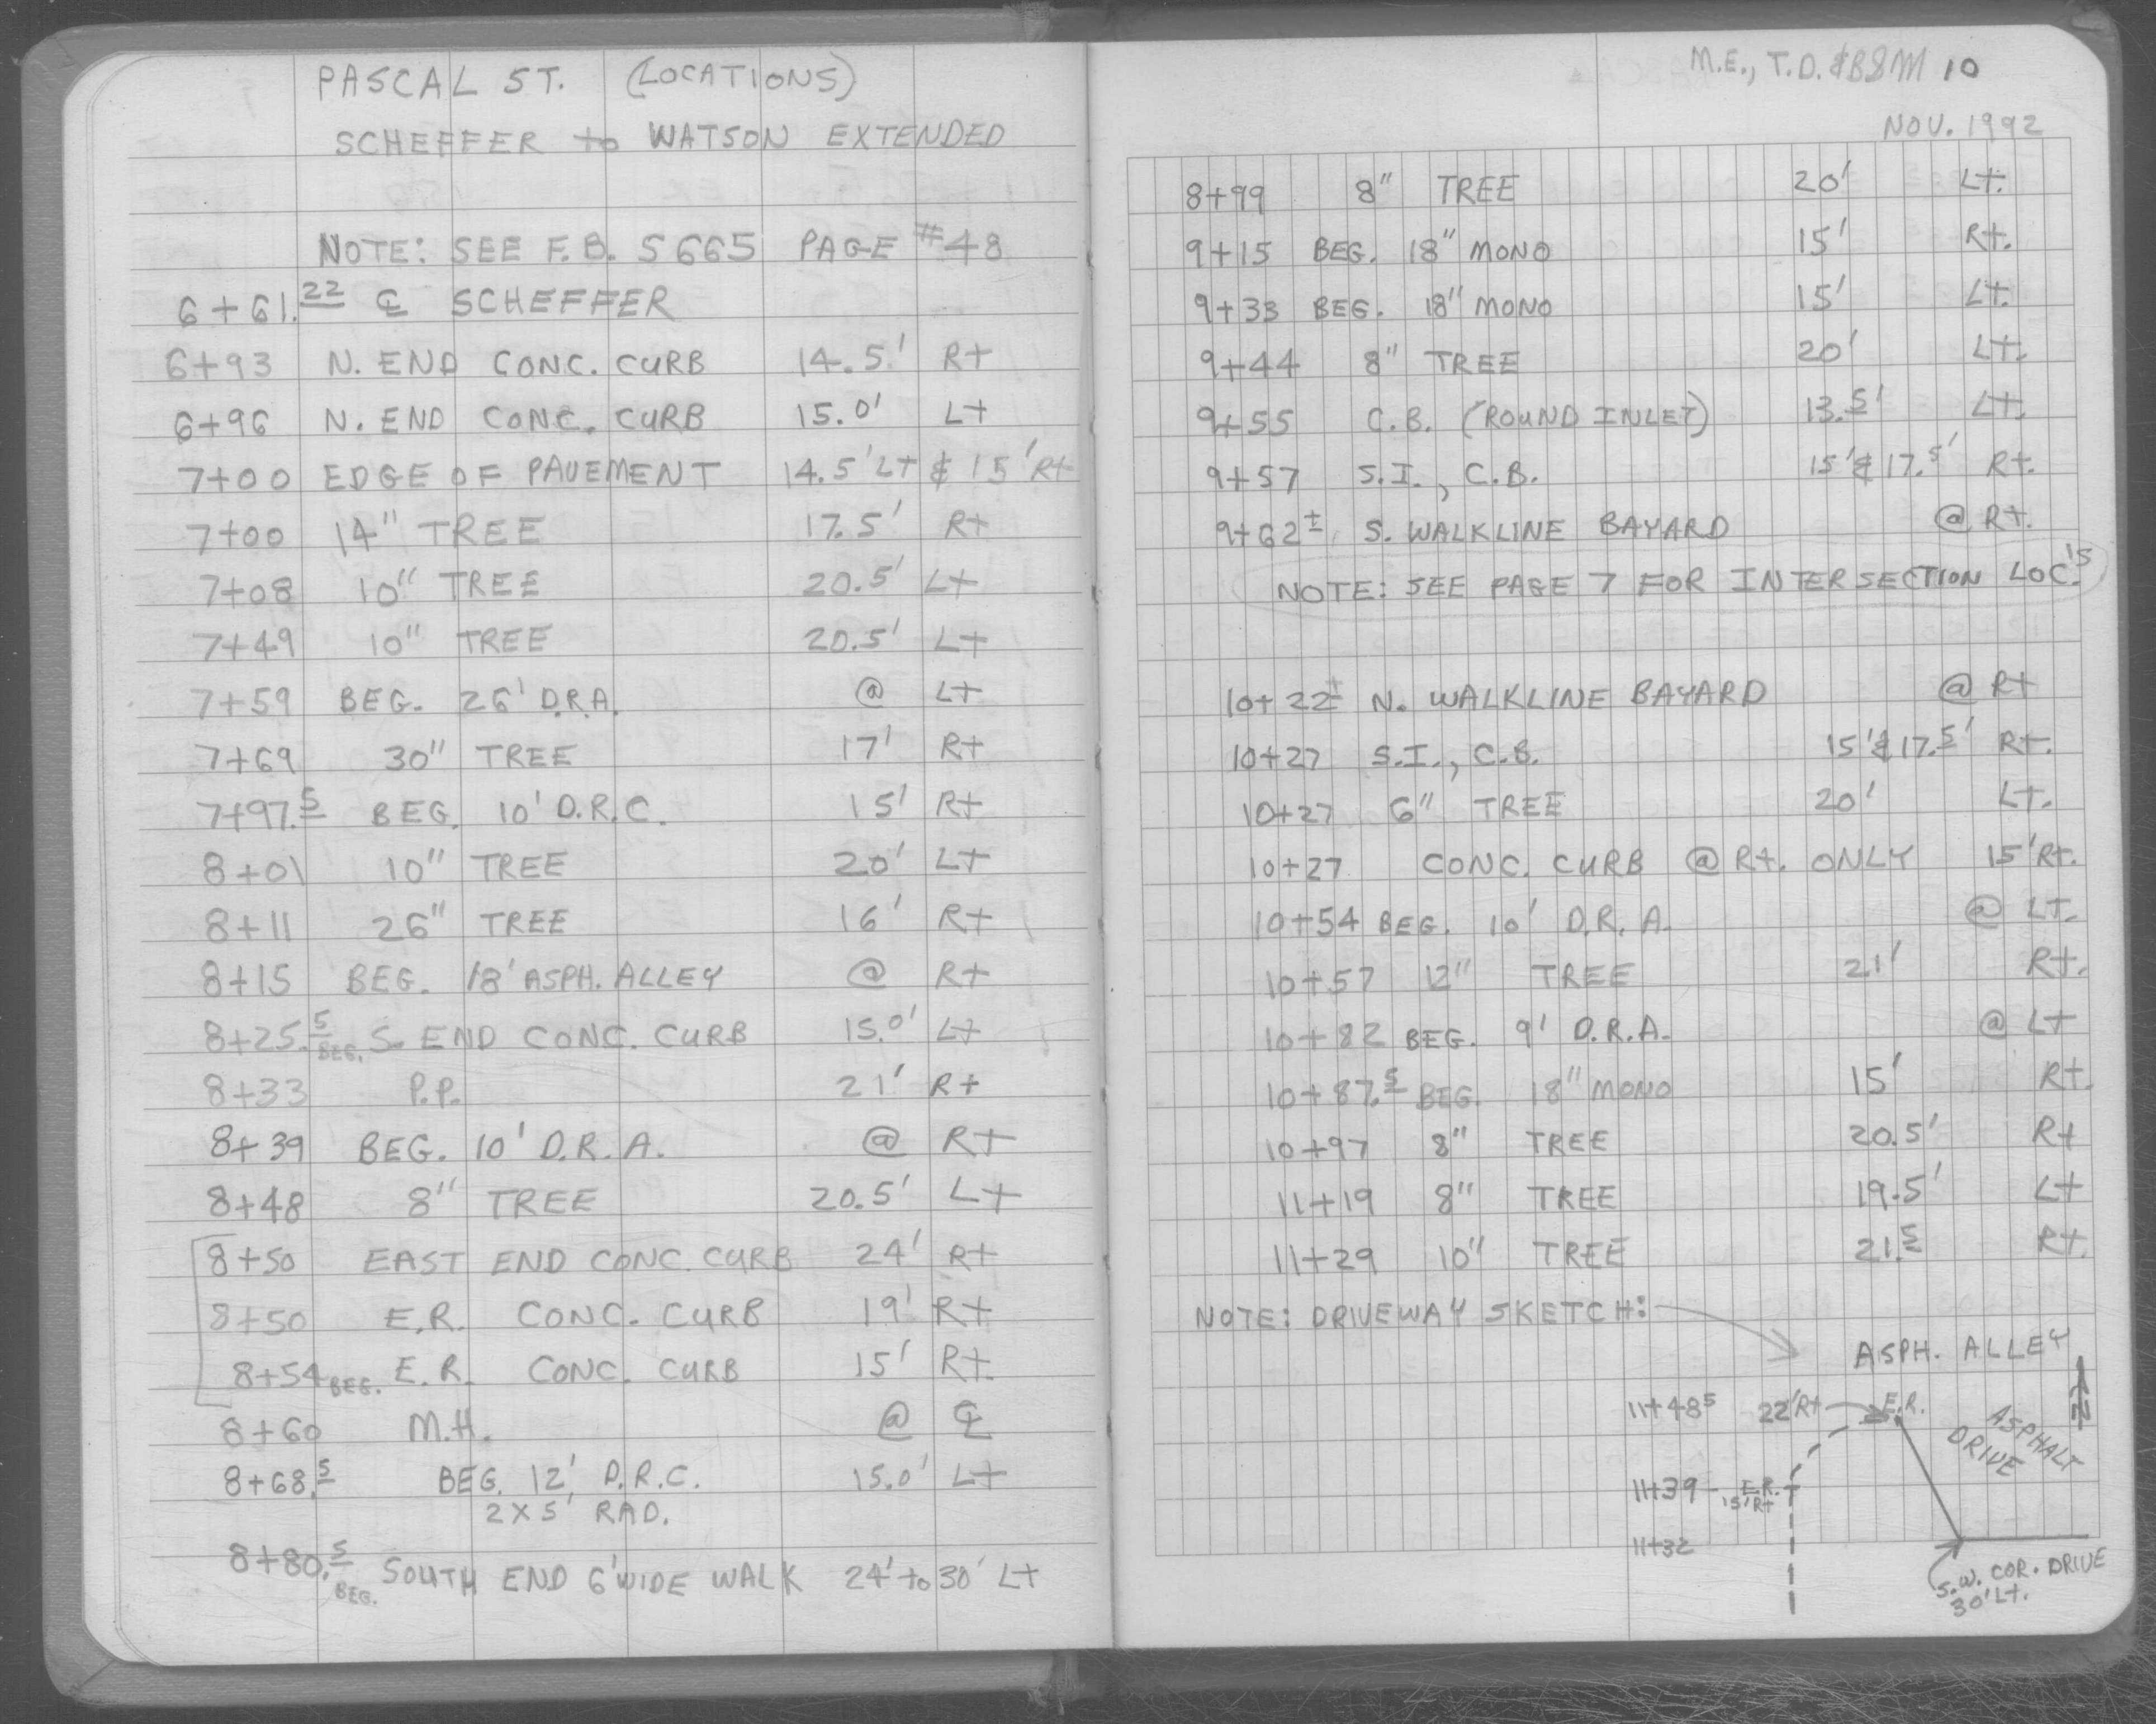 PASCAL ST. (LOCATIONS)
SCHEFFER to WATSON EXTENDED
NOTE: SEE F.B. 5665 PAGE #48
6+61.22 ℄ SCHEFFER
6+93 N. END CONC. CURB 14.5' Rt
6+96 N. END CONC. CURB 15.0' Lt
7+00 EDGE OF PAVEMENT 14.5' Lt & 15' Rt
7+00 14" TREE 17.5' Rt
7+08 10" TREE 20.5' Lt
7+49 10" TREE 20.5' Lt
7+59 BEG. 26' D.R.A. @ Lt
7+69 30" TREE 17' Rt
7+97.5 BEG. 10' D.R.C. 15' Rt
8+01 10" TREE 20' Lt
8+11 26" TREE 16' Rt
8+15 BEG. 18' ASPH. ALLEY @ Rt
8+25.5 BEG. S. END CONC. CURB 15.0' Lt
8+33 P.P. 21' Rt
8+39 BEG. 10' D.R.A. @ Rt
8+48 8" TREE 20.5' Lt
8+50 EAST END CONC. CURB 24' Rt
8+50 E.R. CONC. CURB 19' Rt
8+54 BEG. E.R. CONC. CURB 15' Rt.
8+60 M.H. @ ℄
8+68.5 BEG. 12' D.R.C. 15.0' Lt
2 X 5' RAD.
8+80.5 BEG. SOUTH END 6' WIDE WALK 24' to 30' Lt
M.E., T.D. & BSM 10
NOV. 1992
8+99 8" TREE 20' Lt.
9+15 BEG. 18" MONO 15' Rt.
9+33 BEG. 18" MONO 15' Lt.
9+44 8" TREE 20' Lt.
9+55 C.B. (ROUND INLET) 13.5' Lt.
9+57 S.I., C.B. 15' & 17.5' Rt.
9+62± S. WALKLINE BAYARD @ Rt.
NOTE: SEE PAGE 7 FOR INTERSECTION LOC.'S
10+22± N. WALKLINE BAYARD @ Rt
10+27 S.I., C.B. 15' & 17.5' Rt.
10+27 6" TREE 20' Lt.
10+27 CONC. CURB @ Rt. ONLY 15' Rt.
10+54 BEG. 10' D.R.A. @ Lt.
10+57 12" TREE 21' Rt.
10+82 BEG. 9' D.R.A. @ Lt
10+87.5 BEG. 18" MONO 15' Rt.
10+97 8" TREE 20.5' Rt
11+19 8" TREE 19.5' Lt
11+29 10" TREE 21.5 Rt.
NOTE: DRIVEWAY SKETCH:
ASPH. ALLEY
N
11+48⁵ 22' Rt E.R.
ASPHALT
DRIVE
11+39 E.R.
15' Rt
11+32
S.W. COR. DRIVE
30' Lt.